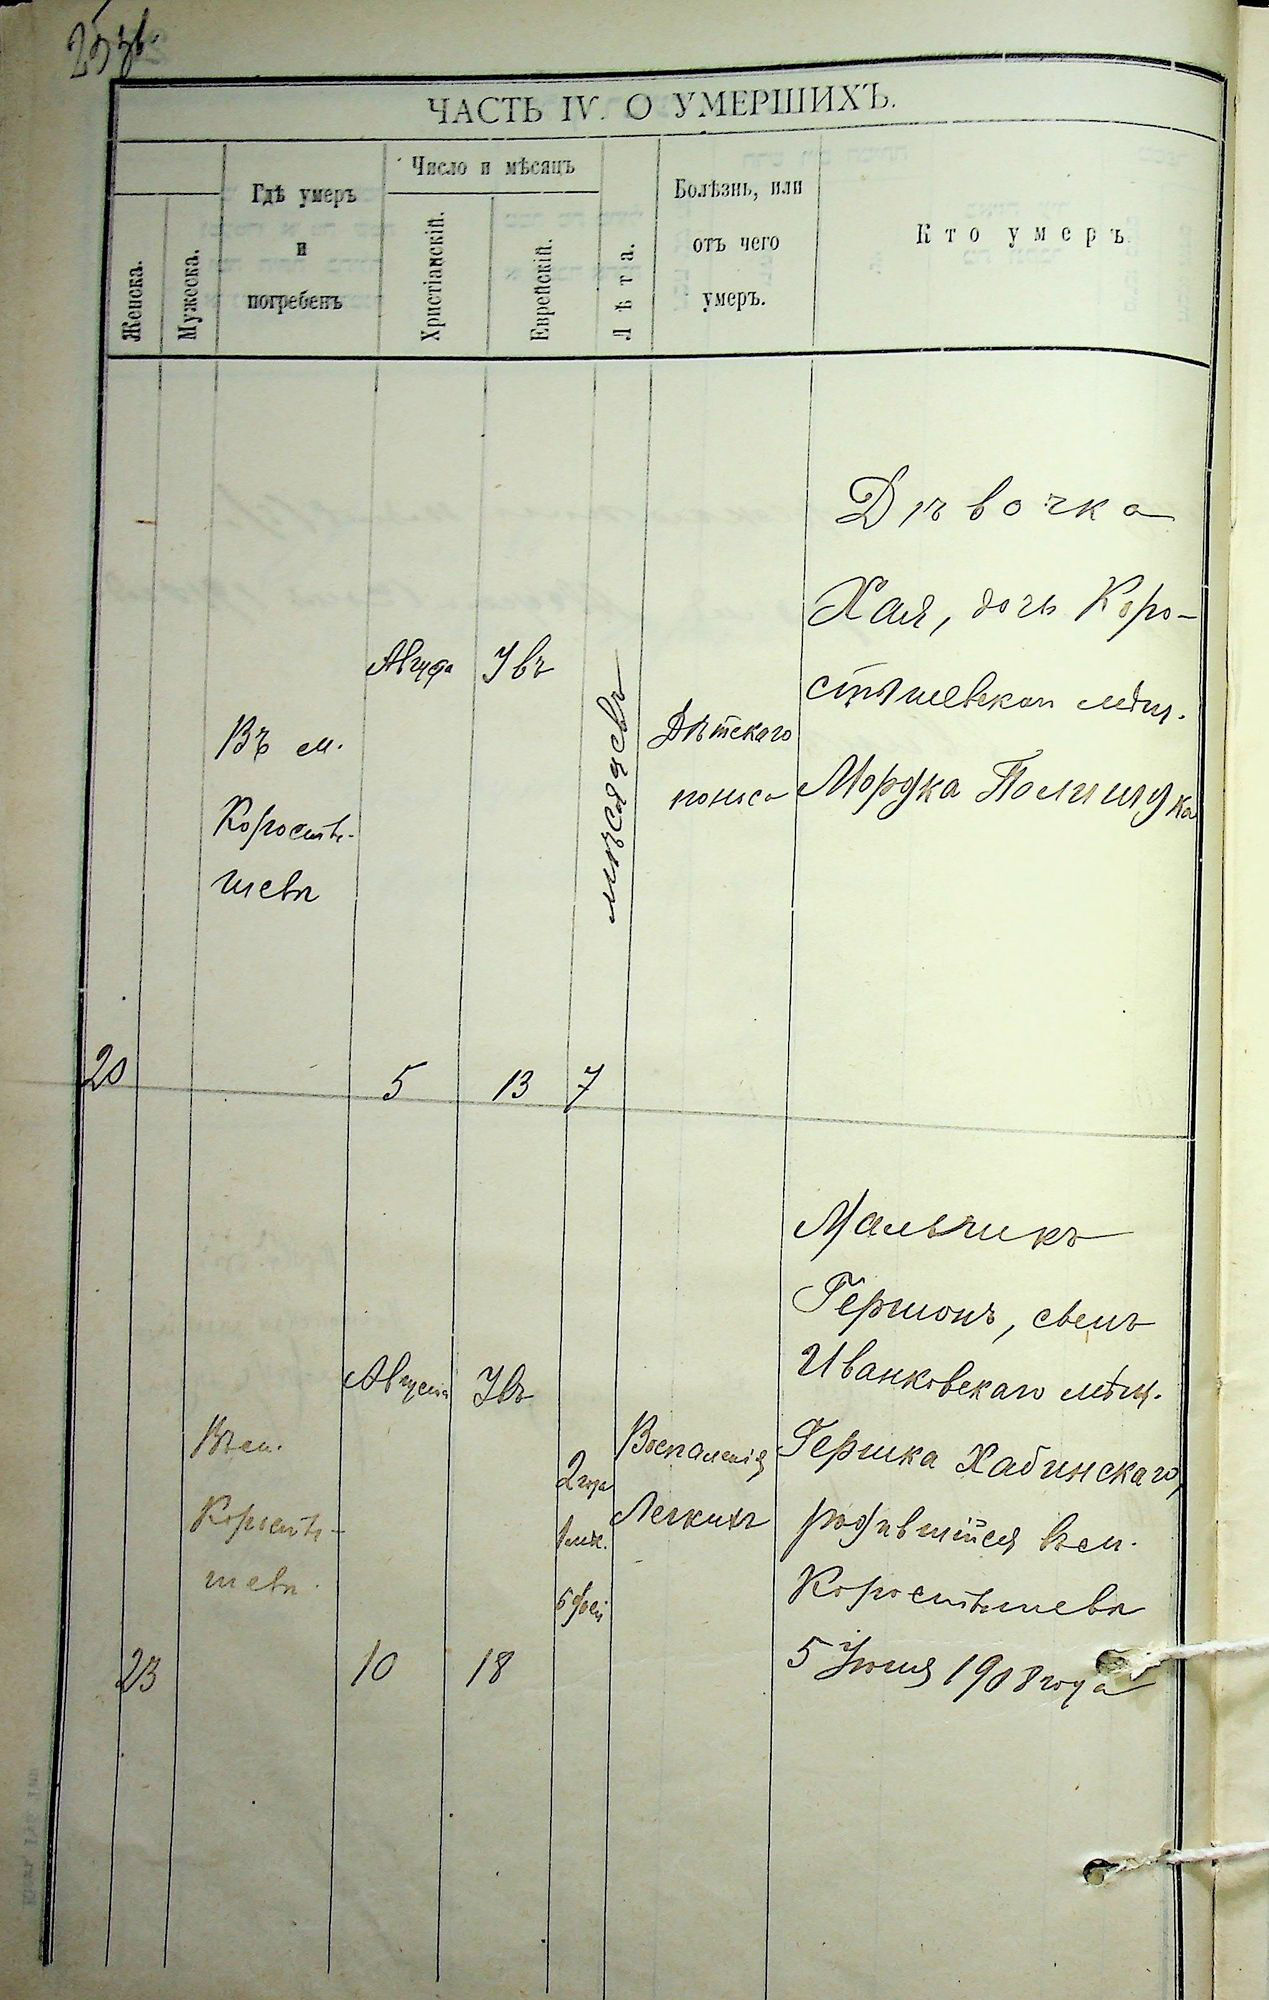 25 зв.
ЧАСТЬ IV. О УМЕРШИХЪ.
Женска.
Мужеска.
Гдѣ умеръ
и
погребенъ
Число и мѣсяцъ
Христіанскій.
Еврейскій.
Лѣта.
Болѣзнь, или
отъ чего
умеръ.
Кто умеръ
20
Въ м.
Коросты-
шевѣ
Августа
5
Увъ
13
7
мѣсяцевъ
Дѣтскаго
поноса
Дѣвочка
Хая, дочь Коро-
стышевскаго мѣщ.
Мордка Полищука
23
Въ м.
Коросты-
шевѣ.
Августа
10
Увъ
18
2 года
1 мѣс.
5 дней
Воспаленія
Легкихъ
Мальчикъ
Гершонъ, сынъ
Иванковскаго мѣщ.
Гершка Хабинскаго,
родившійся въ м.
Коростышевѣ
5 Іюля 1908 года